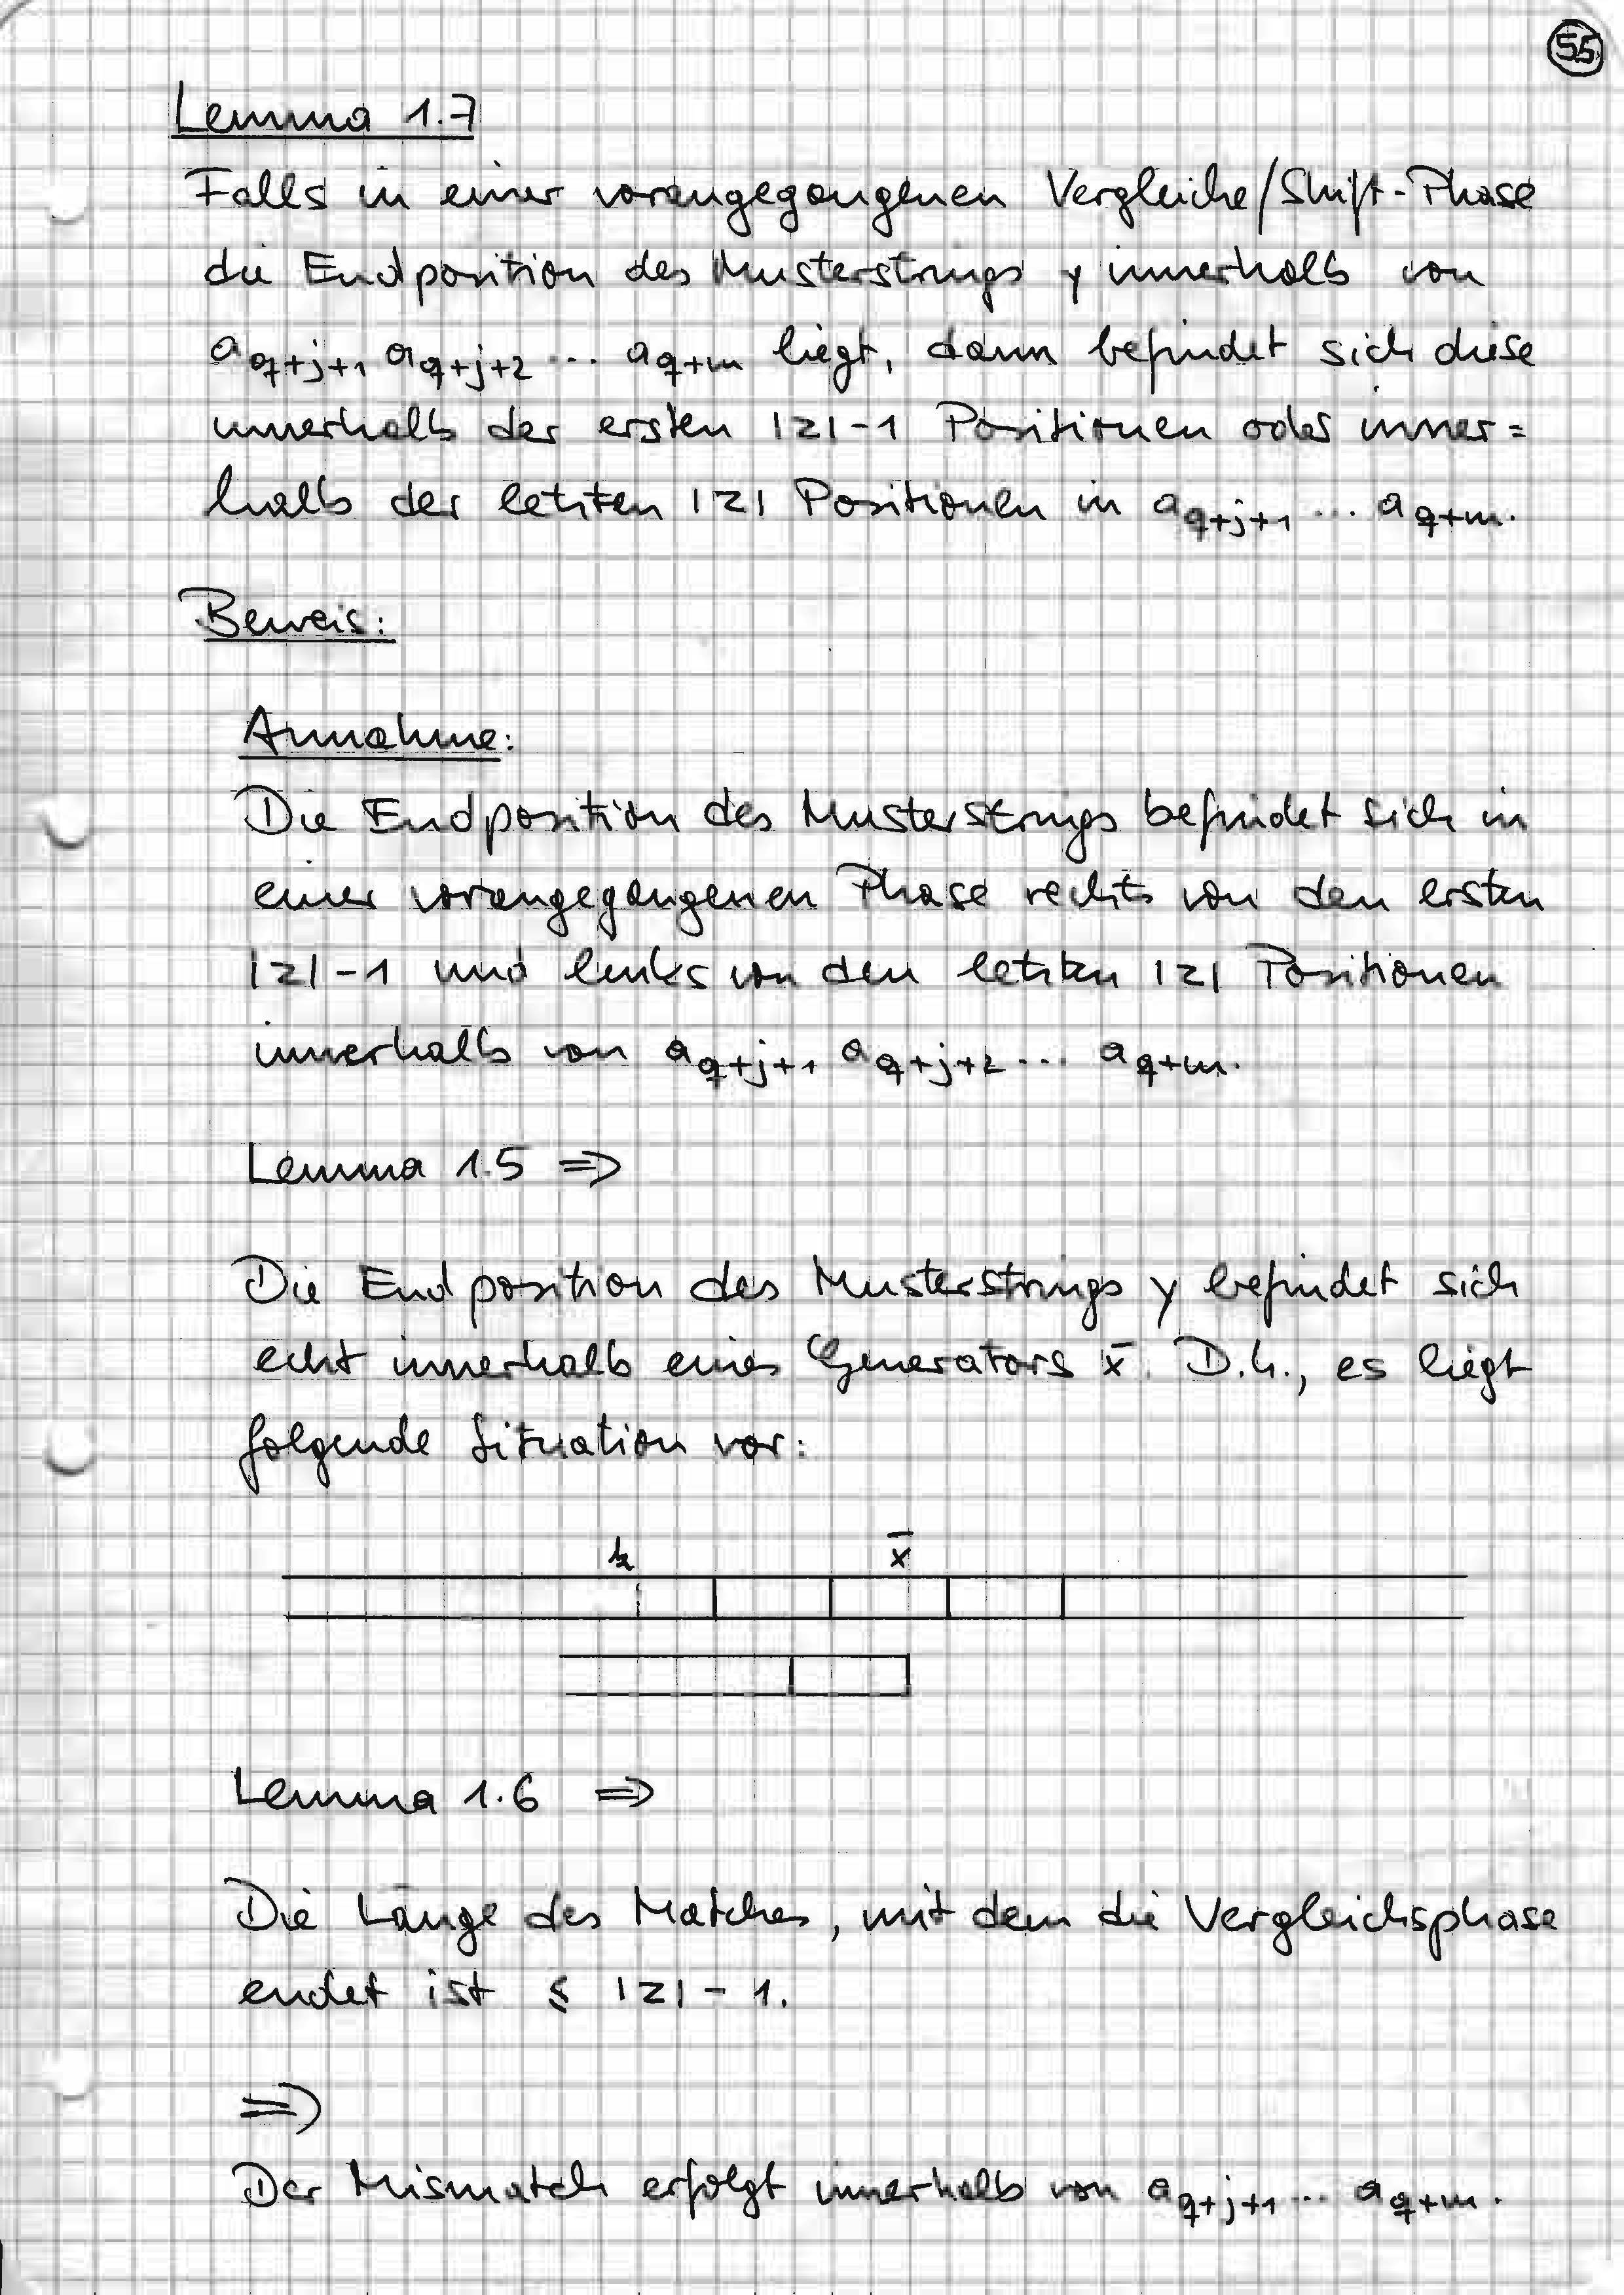 55
Lemma 1.7
Falls in einer vorangegangenen Vergleiche/Shift-Phase
die Endposition des Musterstrings y innerhalb von
a_{q+j+1} a_{q+j+2} ... a_{q+m} liegt, dann befindet sich diese
innerhalb der ersten |z|-1 Positionen oder inner=
halb der letzten |z| Positionen in a_{q+j+1} ... a_{q+m}.
Beweis:
Annahme:
Die Endposition des Musterstrings befindet sich in
einer vorangegangenen Phase rechts von den ersten
|z|-1 und links von den letzten |z| Positionen
innerhalb von a_{q+j+1} a_{q+j+2} ... a_{q+m}.
Lemma 1.5 ⇒
Die Endposition des Musterstrings y befindet sich
echt innerhalb eines Generators x̄. D.h., es liegt
folgende Situation vor:
k x̄
Lemma 1.6 ⇒
Die Länge des Matches, mit dem die Vergleichsphase
endet ist ≤ |z| - 1.
⇒
Der Mismatch erfolgt innerhalb von a_{q+j+1} ... a_{q+m}.